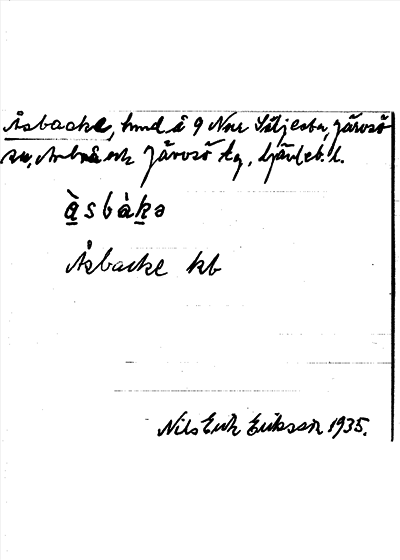 Åsbacke, hmd å 9 Nor Säljesta, Järvsö
sn, Arbrå och Järvsö tg, Gävleb. l.
å̀sbàkə
Åsbacke kb
Nils Erik Eriksson 1935.